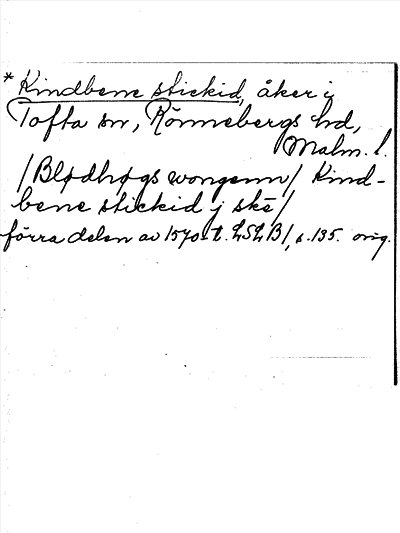 * Kindbene stickid, åker i
Tofta sn, Rönnebergs hd,
Malm. l.
/Blødhøgs wongenn/ Kind-
bene stickid j skē/
förra delen av 1570-t. LSLB1, s. 135. orig.